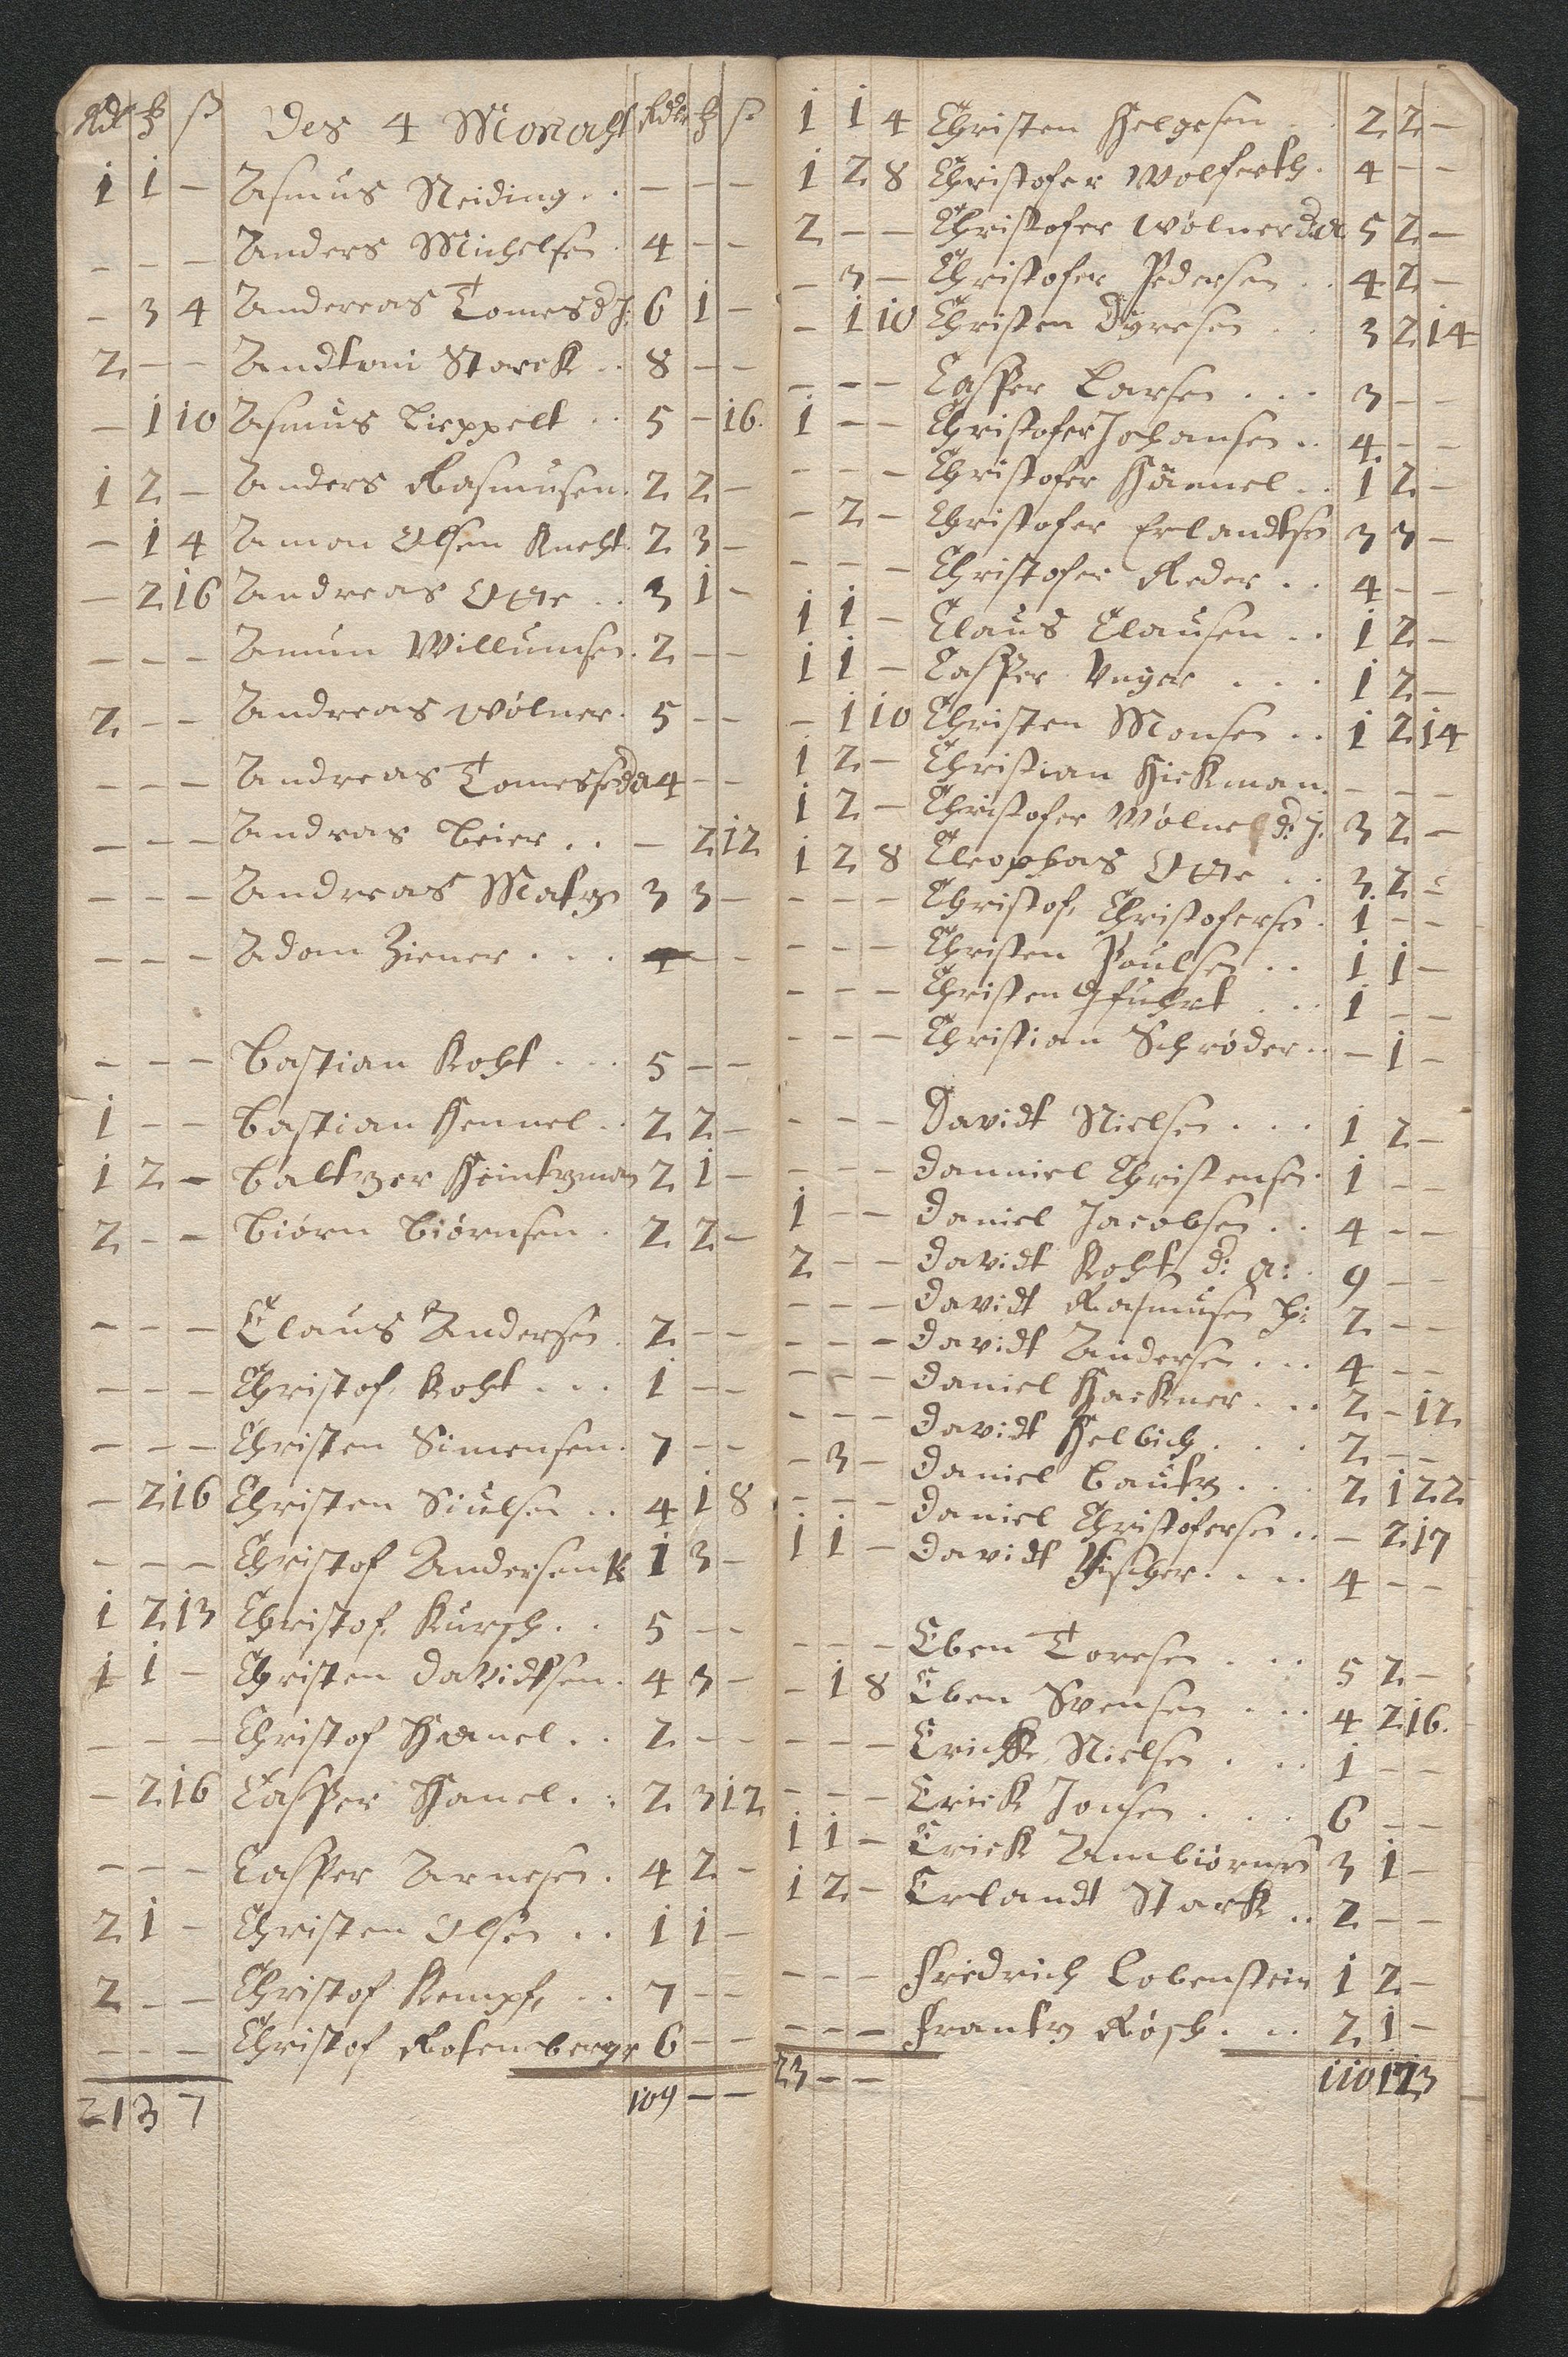 Rdl ß Des 4 Monacht Rdlr ß
1 1 – Asmus Neiding . . – – –
– – – Anders Michelsen . 4 – –
– 3 4 Andereas Tomes d J: 6 1 –
2 – – Andtoni Starck . . 8 – –
– 1 10 Asmus Lieppelt . . 5 – 16.
1 2 – Anders Rasmusen . 2 2 –
– 1 4 Amon Olsen Knecht . 2 3 –
– 2 16 Andreas Otte . . 3 1 –
– – – Amun Willumsen . 2 – –
2 – – Andreas Wølner . 5 – –
– – – Andreas Tomessen da 4 – –
– – – Andras Beier . . – 2 12
– – – Andreas Matz 3 3 –
– – – Adam Ziener . . . – –
– – – Bastian Koht . . . 5 – –
1 – – Bastian Hennel . . 2 2 –
1 2 – Baltzer Heintzman 2 1 –
2 – – Biørn Biørnsen . 2 2 –
– – – Claus Andersen . 2 – –
– – – Christof, Koht . . . 1 – –
– – – Christen Simensen . 7 – –
– 2 16 Christen Siulsen . . 4 1 8
– – – Christof Andersen K 1 3 –
1 2 13 Christof, Kursch . . 5 – –
1 1 – Christen Davidtsen . 4 3 –
– – – Christof Hamel . . 2 – –
– 2 16 Casper Hanel . . 2 3 12
– – – Casper Arnesen . 4 2 –
2 1 – Christen Olsen . . 1 1 –
2 – – Christof Kempf, . . 7 – –
– – – Christof Rotenberger 6 – –
21 3 7 109 – –
1 1 4 Christen Helgesen . 2 2 –
1 2 8 Christofer Wolferth . 4 – –
2 – – Christofer Wølner da 5 2 –
– 3 – Christofer Pedersen . . 4 2 –
– 1 10 Christen Dyresen . . 3 2 14
– – – Casper Larsen . . . 3 – –
1 – – Christofer Johansen . . 4 – –
– – – Christofer Hamel . . 1 2 –
– 2 – Christofer Erlandtsen 3 3 –
– – – Christofer Reder . . 4 – –
1 1 – Claus Clausen . . 1 2 –
1 1 – Casper Unger . . . 1 2 –
– 1 10 Christen Monsen . . 1 2 14
1 2 – Christian Hickman . – – –
1 2 – Christofer Wølner d: J. 3 2 –
1 2 8 Cleophas Otte . . 3 2 –
– – – Christof, Christofersen . 1 – –
– – – Christen Poulsen . . 1 1 –
– – – Christen . . . 1 – –
– – – Christian Schrøder . . – 1 –
– – – Davidt Nielsen . . . 1 2 –
– – – Danniel Christensen . 1 – –
1 – – Daniel Jacobsen . . 4 – –
2 – – Davidt Koht d: a: . 9 – –
– – – Davidt Rasmusen 2 – –
– – – Davidt Andersen . . . 4 – –
– – – Daniel Hackner . . . 2 – 12
– – – Davidt Helbich . . . 2 – –
– 3 – Daniel Bautz . . . 2 1 22
– – – Daniel Christofersen . . – 2 17
1 1 – Davidt Fischer . . . . 4 – –
– – – Eben Toresen . . . 5 2 –
– 1 8 Eben Svensen . . . 4 2 16.
– – – Erick Nielsen . . . 1 – –
– – – Erick Jonsen . . . 6 – –
1 1 – Erick Ambiørnsen 3 1 –
1 2 – Erlandt Stark . . 2 – –
– – – Fridrich Lobenstein 1 2 –
– – – Frantz Røsch . . . 2 1 –
23 – – 110 1 23